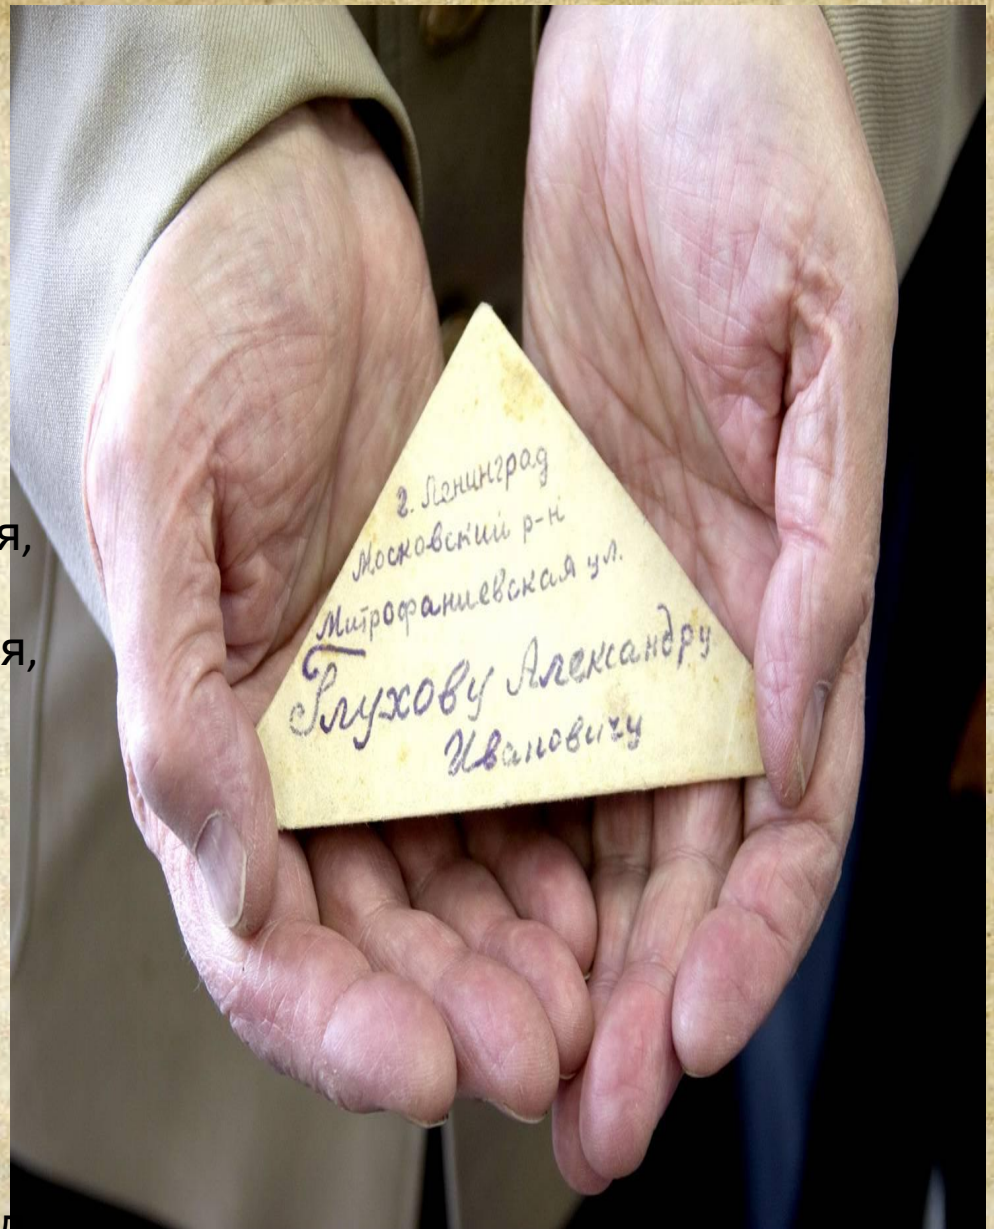 я,
я,
г. Ленинград
Московский р-н
Митрофаниевская ул.
Глухову Александру
Ивановичу